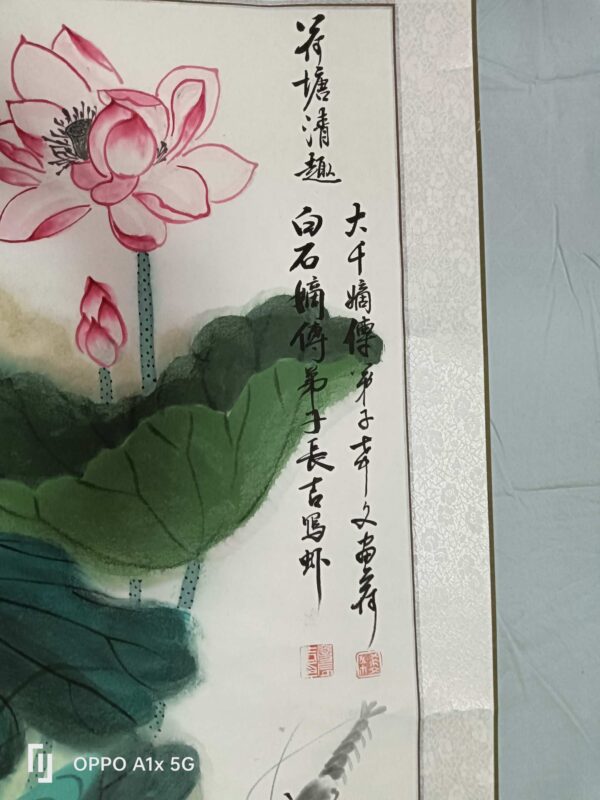 荷塘清趣
大千嫡傳弟子文畫荷
白石嫡傳弟子長吉寫虾
OPPO A1x 5G